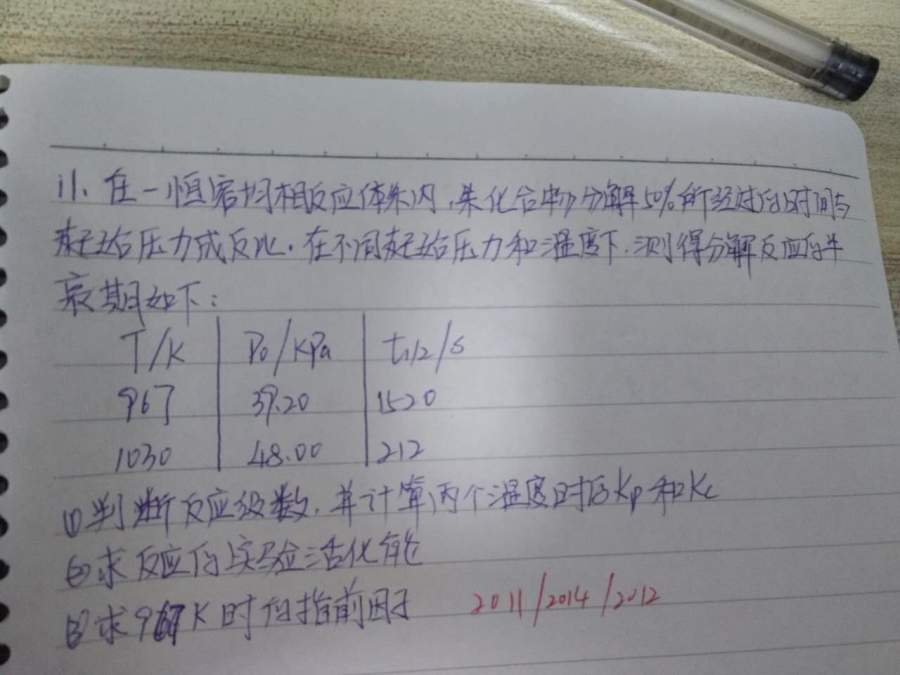 11. 在一恒容均相反应体系内,某化合物分解50%所经过的时间与
起始压力成反比.在不同起始压力和温度下.测得分解反应的半
衰期如下:
T/K P0/KPa t1/2/s
967 39.20 1520
1030 48.00 212
(1)判断反应级数,并计算两个温度时的Kp和Kc
(2)求反应的实验活化能
(3)求967K时的指前因子 2011/2014/2012